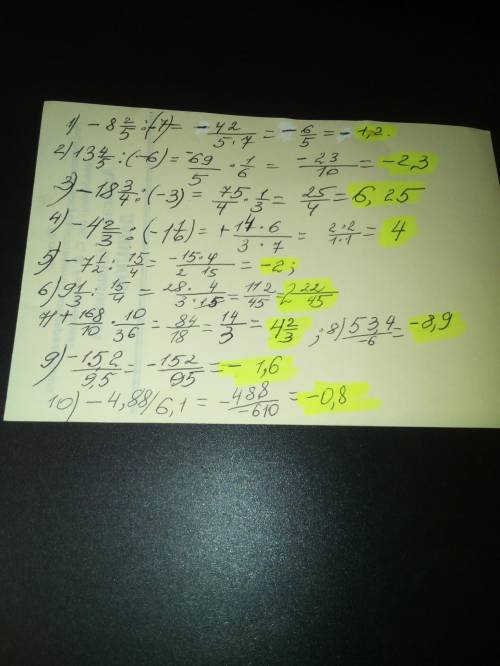 1) -8 2/5 : (-7) = -42/5·7 = -6/5 = -1,2.
2) 13 4/5 : (-6) = -69/5 · 1/6 = -23/10 = -2,3
3) -18 3/4 : (-3) = 75/4 · 1/3 = 25/4 = 6,25
4) -4 2/3 : (-1 1/6) = + 14·6/3·7 = 2·2/1·1 = 4
5) -7 1/2 : 15/4 = -15·4/2 15 = -2;
6) 9 1/3 : 15/4 = 28·4/3·15 = 112/45 = 2 22/45
7) + 168/10 · 10/36 = 84/18 = 14/3 = 4 2/3 ; 8) 534/-6 = -8,9
9) -152/95 = -152/95 = -1,6
10) -4,88/6,1 = -488/-610 = -0,8